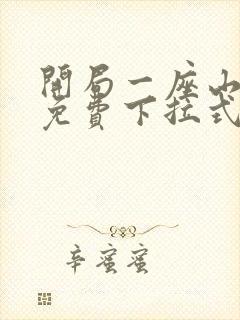 開局一座山
免費下拉式
辛蜜蜜